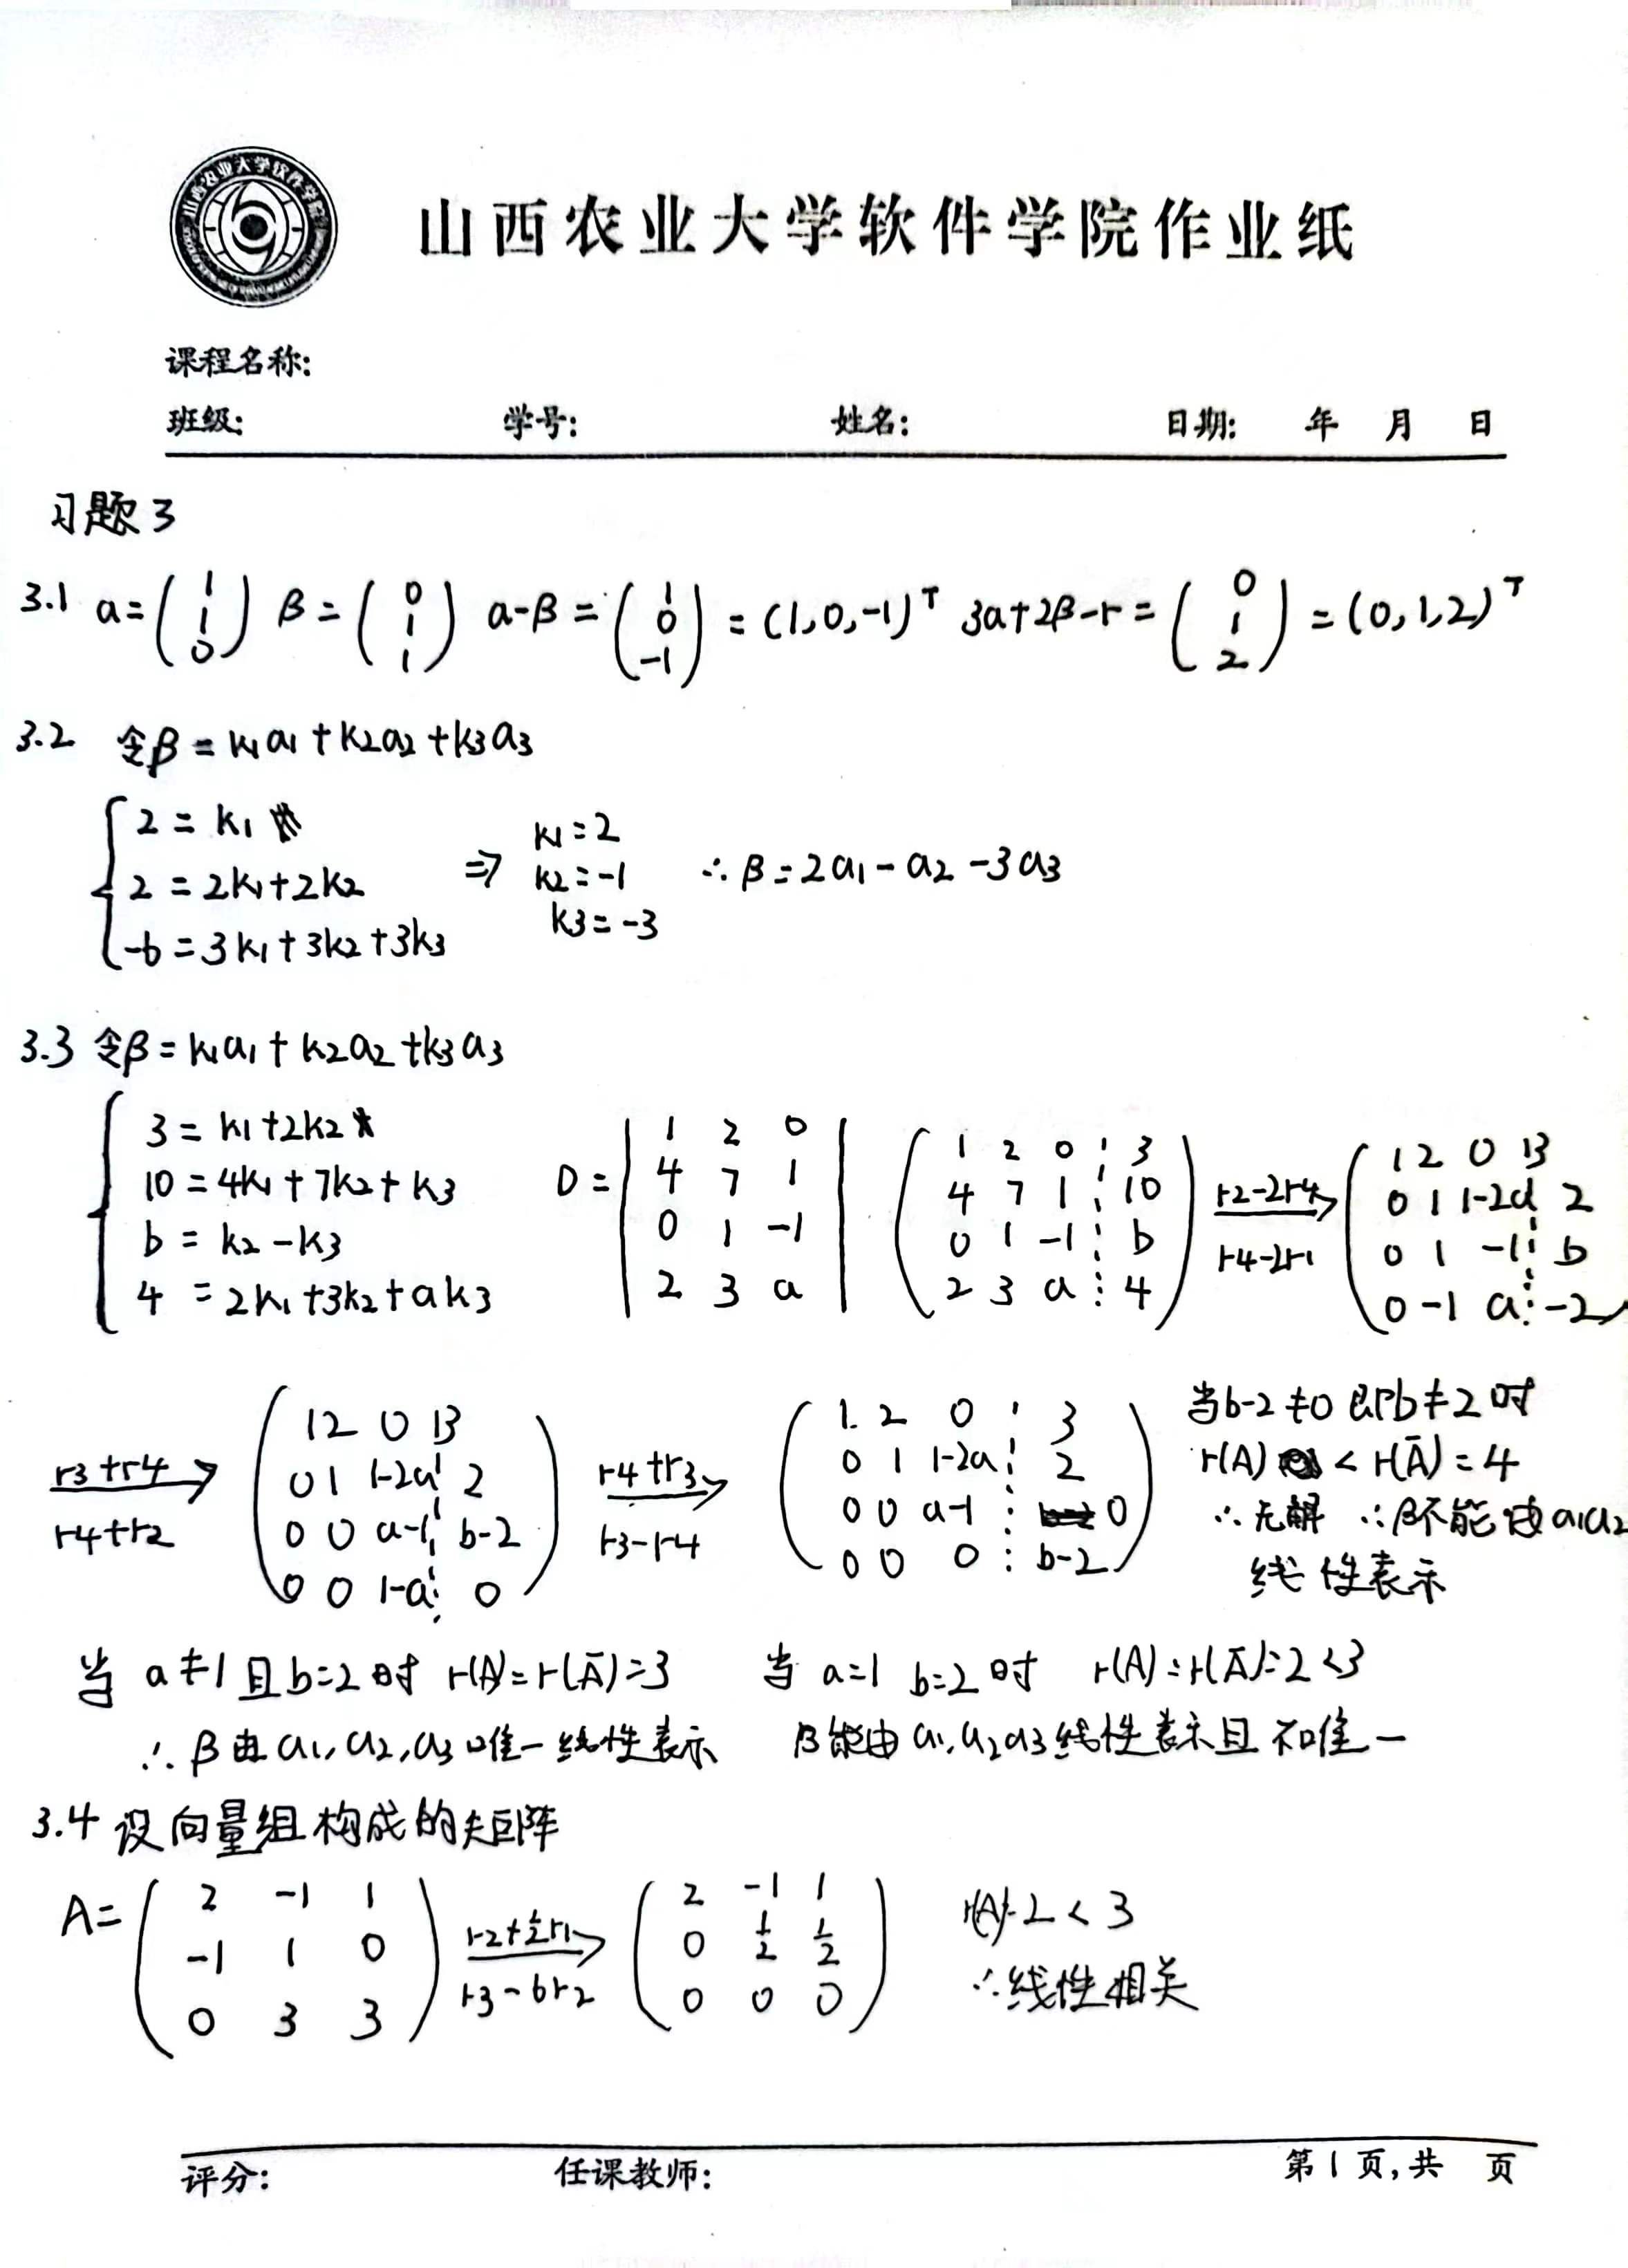 山西农业大学软件学院
山西农业大学软件学院作业纸
课程名称:
班级: 学号: 姓名: 日期: 年 月 日
习题3
3.1 a=(1 1 0) β=(0 1 1) a-β=(1 0 -1)=(1,0,-1)ᵀ 3a+2β-r=(0 1 2)=(0,1,2)ᵀ
3.2 令β=k1a1+k2a2+k3a3
{ 2=k1
2=2k1+2k2
-6=3k1+3k2+3k3
⇒ k1=2
k2=-1
k3=-3
∴β=2a1-a2-3a3
3.3 令β=k1a1+k2a2+k3a3
{ 3=k1+2k2
10=4k1+7k2+k3
b=k2-k3
4=2k1+3k2+ak3
D=
| 1 2 0 |
| 4 7 1 |
| 0 1 -1 |
| 2 3 a |
( 1 2 0 ⋮ 3
4 7 1 ⋮ 10
0 1 -1 ⋮ b
2 3 a ⋮ 4 )
r2-2r4
→
r4-2r1
( 1 2 0 ⋮ 3
0 1 1-2a ⋮ 2
0 1 -1 ⋮ b
0 -1 a ⋮ -2 )
r3+r4
→
r4+r2
( 1 2 0 ⋮ 3
0 1 1-2a ⋮ 2
0 0 a-1 ⋮ b-2
0 0 1-a ⋮ 0 )
r4+r3
→
r3-r4
( 1 2 0 ⋮ 3
0 1 1-2a ⋮ 2
0 0 a-1 ⋮ 0
0 0 0 ⋮ b-2 )
当b-2≠0 即b≠2时
r(A)<r(Ā)=4
∴无解 ∴β不能由a1a2
线性表示
当 a≠1且b=2时 r(A)=r(Ā)=3
∴β由a1,a2,a3唯一线性表示
当 a=1 b=2时 r(A)=r(Ā)=2<3
β能由a1,a2a3线性表示且不唯一
3.4 设向量组构成的矩阵
A=( 2 -1 1
-1 1 0
0 3 3 )
r2+½r1
→
r3-6r2
( 2 -1 1
0 ½ ½
0 0 0 )
r(A)=2<3
∴线性相关
评分: 任课教师: 第1页,共 页